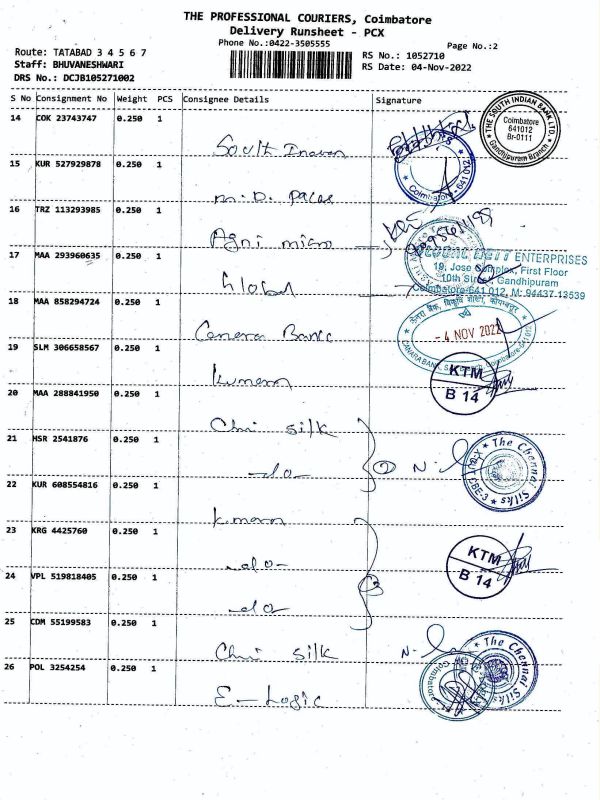 THE PROFESSIONAL COURIERS, Coimbatore
Delivery Runsheet - PCX
Phone No.:0422-3505555
Page No.:2
Route: TATABAD 3 4 5 6 7
Staff: BHUVANESHWARI
DRS No.: DCJB105271002
RS No.: 1052710
RS Date: 04-Nov-2022
S No Consignment No Weight PCS Consignee Details Signature
14 COK 23743747 0.250 1
South Indian
THE SOUTH INDIAN BANK LTD.
Coimbatore
641012
Br-0111
Gandhipuram Branch
Coimbatore-641 012
15 KUR 527929878 0.250 1
m. D. Places
16 TRZ 113293985 0.250 1
Agni micro
17 MAA 293960635 0.250 1
Global
ENTERPRISES
19, Jose Complex, First Floor
10th Street, Gandhipuram
Coimbatore-641 012, M: 94437-13539
18 MAA 858294724 0.250 1
Canera Bank
- 4 NOV 2022
19 SLM 306658567 0.250 1
kumeran
KTM
B 14
20 MAA 288841950 0.250 1
Chni silk
21 HSR 2541876 0.250 1
-do-
② N.
The Chennai Silks
CBE-3
22 KUR 608554816 0.250 1
23 KRG 4425760 0.250 1
-do-
KTM
B 14
24 VPL 519818405 0.250 1
-do
25 CDM 55199583 0.250 1
Chni silk
N.
The Chennai Silks
26 POL 3254254 0.250 1
E-Logic
Coimbatore